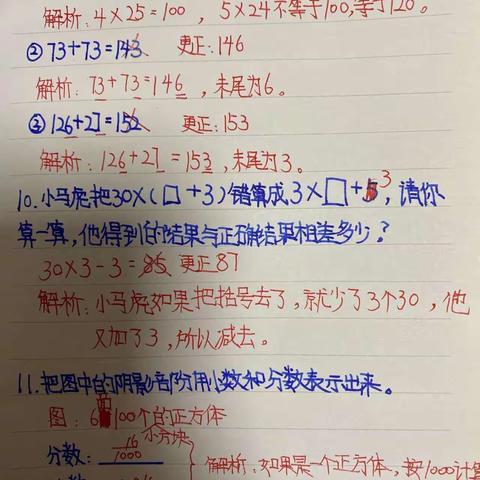 解析：4×25=100，5×24不等于100,等于120。
②73+73=143 更正：146
解析：73+73=146，末尾为6。
③126+27=152 更正：153
解析：126+27=153,末尾为3。
10.小马虎把30×(□+3)错算成3×□+3，请你
算一算，他得到的结果与正确结果相差多少？
30×3-3=85 更正87
解析：小马虎如果把括号去了，就少了3个30，他
又加了3，所以减去。
11.把图中的阴影部分用小数和分数表示出来。
图：6 100个的正方体
小方块
分数：16/1000
解析：如果是一个正方体，按1000计算